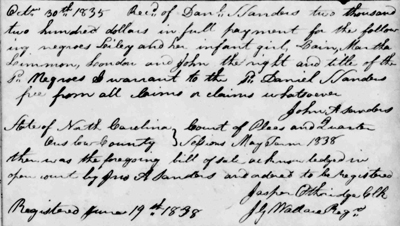 Octr. 30th 1835 Recd. of Danl. Sanders two thousand
two hundred dollars in full payment for the follow
ing negroes and her infant girl, Martha
Simmon, London and John the right and title of the
sd. Negroes I warant to the sd. Daniel Sanders
free from all claims or claims whatsoever
John A Sanders
State of North Carolina } Court of Pleas and Quarter
Onslow County } Sessions May Term 1838
then was the foregoing bill of sale acknowledged in
open court by Jno A Sanders and ordered to be registered
Jasper Etheridge Clk
Registered June 19th 1838 J G Wallace Regr.